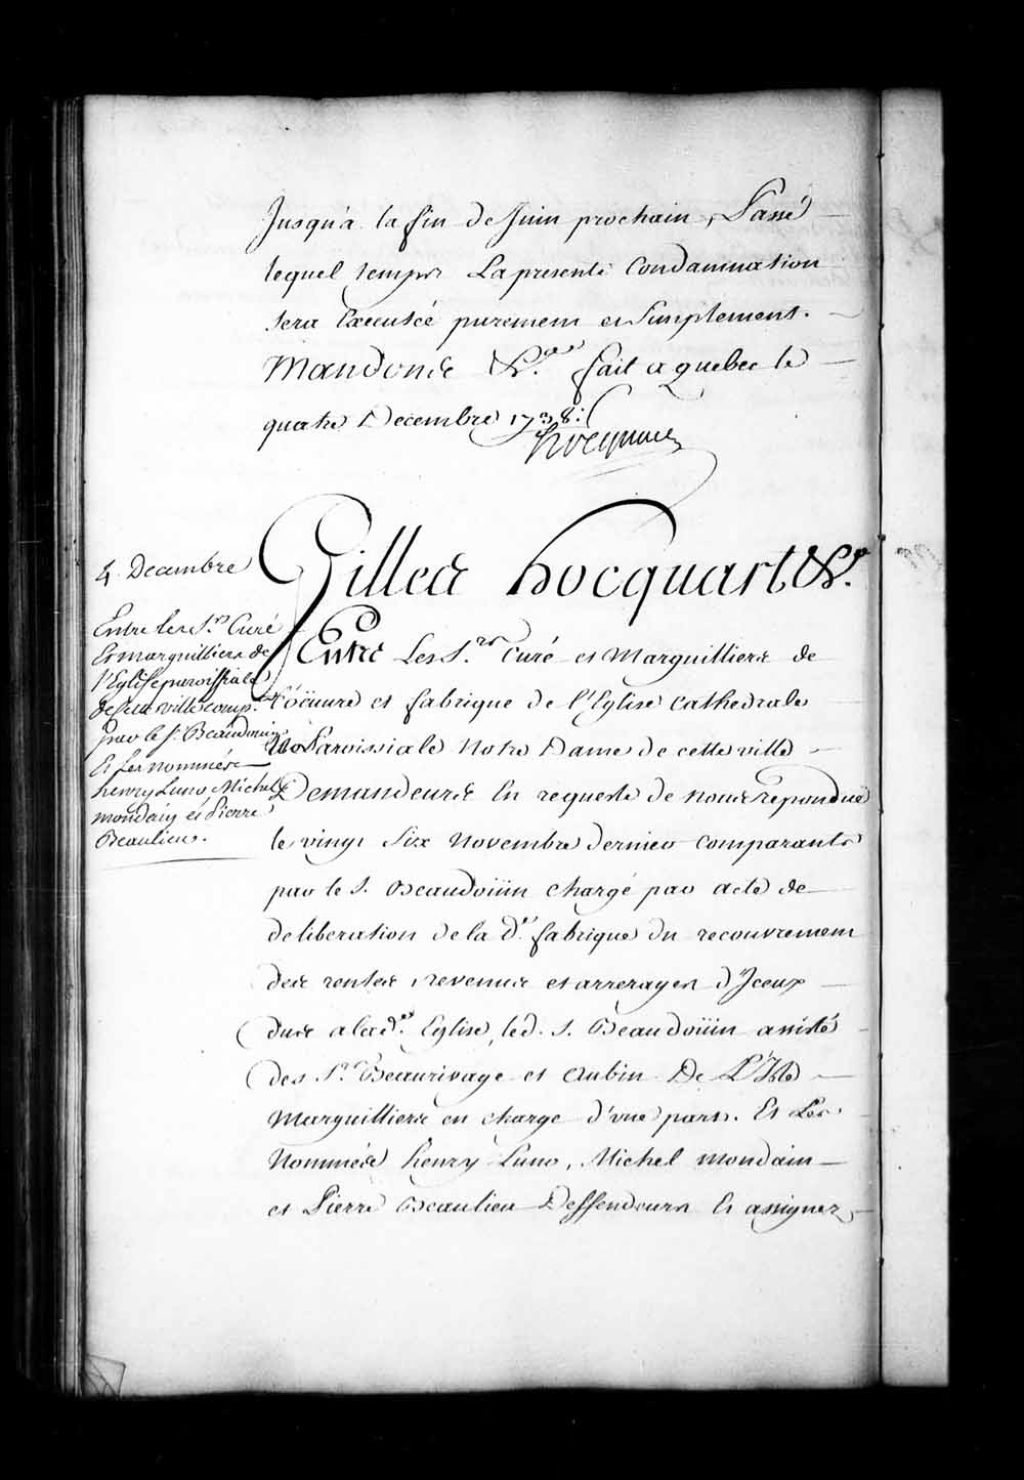 Jusqu'a la fin de Juin prochain, Passé
lequel temps La presente Condamnation
sera Executée purement et Simplement.
Mandons &c.ª fait a quebec le
quatre Decembre 1738:/
hocquart
Gilles hocquart &c.ª
4. Decembre
Entre les S.rs Curé
Et marguilliers de
l'Eglise paroissiale
de cette ville comp.
par le S.r Beaudouin
Et les nommés
henry Luno, Michel
mondain et Pierre
Beaulieu.
Entre Les S.rs Curé et Marguilliers de
l'oeuure et fabrique de l'Eglise cathedrale
Paroissiale Notre Dame de cette ville
Demandeurs En requeste de nous repondue
le vingt Six Novembre dernier comparants
par le S. Beaudoüin chargé par acte de
deliberation de la d.e fabrique du recouvrement
des rentes, revenus et arrerages d'Jceux
dus a lad.e Eglise, led. S. Beaudoüin assisté
des S.rs Beaurivage et Aubin De L'Isle
Marguilliers en charge d'vne part. Et Les
Nommés henry Luno, Michel mondain
et Pierre Beaulieu Deffendeurs Et assignez,